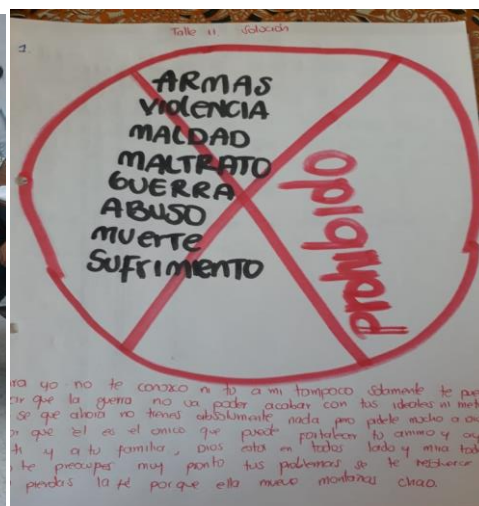 Talle 11. Solución
1.
ARMAS
VIOLENCIA
MALDAD
MALTRATO
GUERRA
ABUSO
MUERTE
SUFRIMIENTO
Prohibido
yo no te conozco ni tu a mi tampoco solamente te
que la guerra no va poder acabar con tus ideales ni
se que ahora no tienes absolutamente nada pero pidele mucho a
que el es el onico que puede fortalecer tu animo y
y a tu familia, Dios esta en todos lado y mira
te preocupes muy pronto tus problemas se te
pierdas la fé porque ella mueve montañas chao.